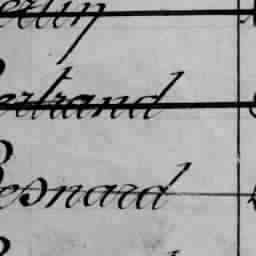 ertin
ertrand
Besnard